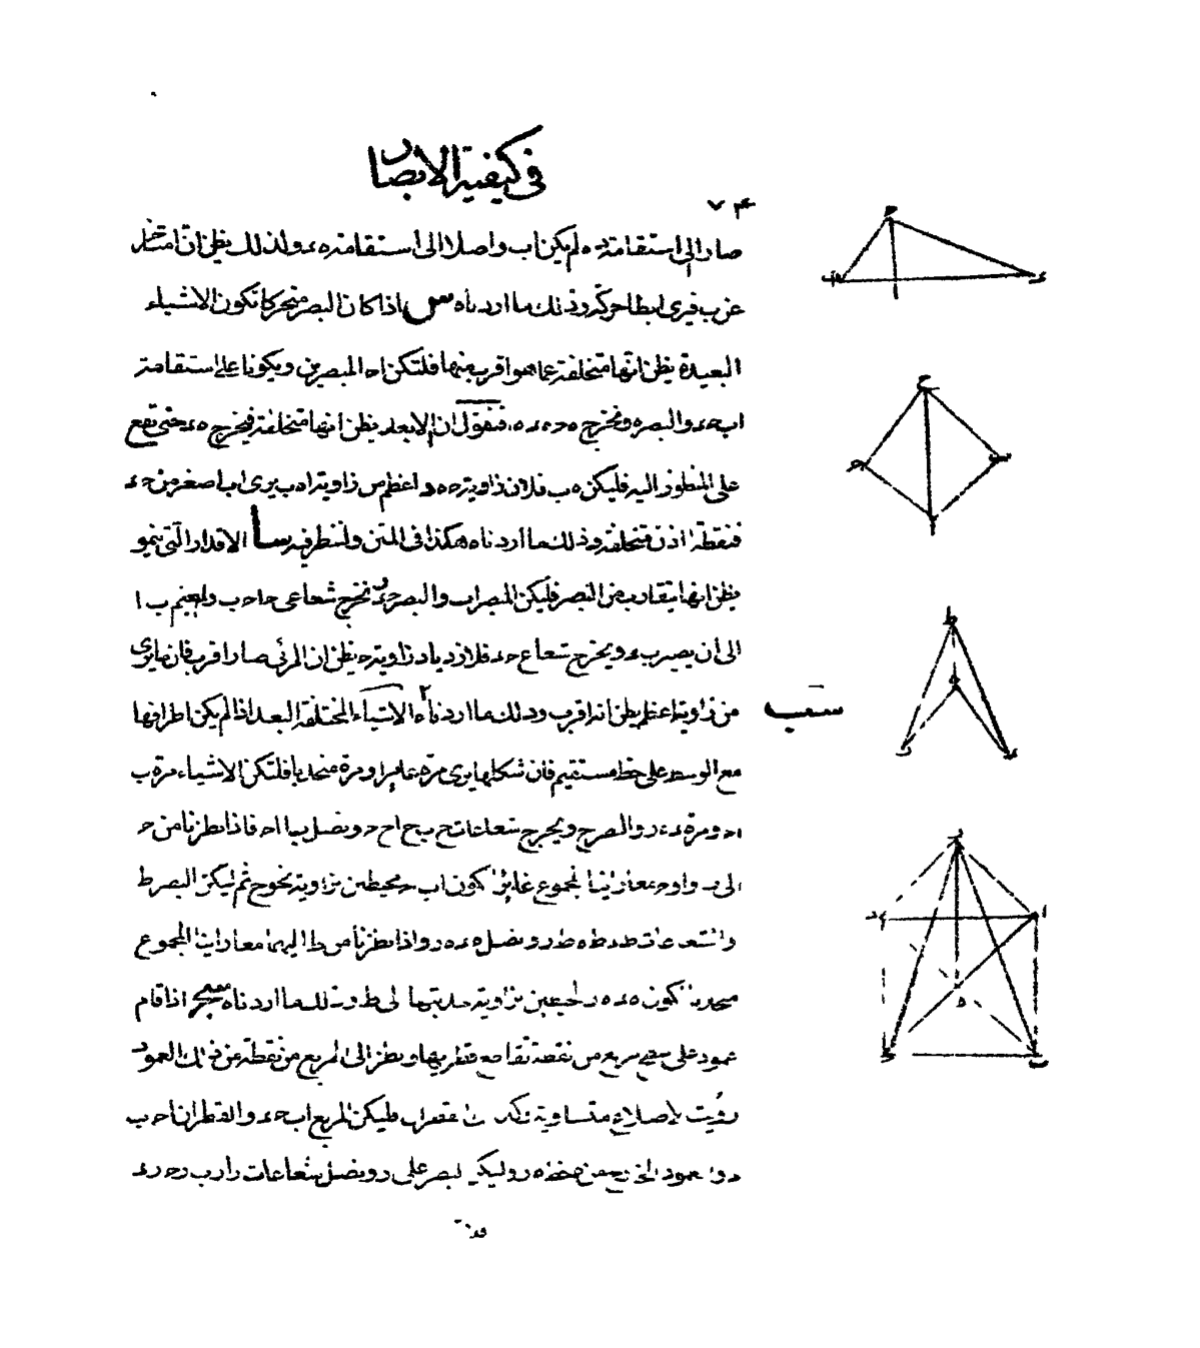 في كيفية الابصار
٧۴
صار الى استقامة ده لم يكن اب واصلا الى استقامة ده ولذلك يظن ان قد تأخر
عن ب فيرى ابطا حركة وذلك ما اردناه س اذا كان البصر متحركا تكون الاشياء
البعيدة يظن انها متخلفة عما هو اقرب منها فلتكن اد المبصرين ويكونا على استقامة
اب حد والبصر ه ونخرج ه ح ه د ه فنقول ان الابعد يظن انها متخلفة فيخرج ه د حتى تقع
على المنظور اليه فليكن ه ب فلان زاوية ح ه د اعظم من زاوية اه ب يرى اب اصغر من ح د
فنقطة اذن متخلفة وذلك ما اردناه هكذا في المتن ولننظر فيه سا الاقدار التي ينمو
يظن انها يتقارب من البصر فليكن المبصر اب والبصر ح ونخرج شعاعي ح ا ح ب ولينم ب ا
الى ان يصير ب د ويخرج شعاع ح د فلازدياد زاوية ح يظن ان المرئي صار اقرب فان ما يرى
من زاوية اعظم يظن انه اقرب وذلك ما اردناه الاشياء المختلفة البعد اذا لم يكن اطرافها
سب
مع الوسط على خط مستقيم فان شكلها يرى مرة مقعرا ومرة منحدبا فلتكن الاشياء مرة ب
ا ح ومرة د ه ر والبصر ح ويخرج شعاعات ح ب ح ا ح ح ونصل ب ا ا ح فاذا نظرنا من ح
الى ب و ا و ح معا رأينا المجموع غايرا لكون اب ح محيطين بزاوية نحو ح ثم ليكن البصر ط
والشعاعات ط د ط ه ط ر ونصل د ه ه ر واذا نظرنا من ط اليهما معا راينا المجموع
محدبا لكون ه د ه ر محيطين بزاوية حدبتها الى ط وذلك ما اردناه سج اذا قام
عمود على سطح مربع من نقطة تقاطع قطريها ونظر الى المربع من نقطة من ذلك العمود
رؤيت الاضلاع متساوية وكذلك القطران فليكن المربع اب ح د والقطران ا ح ب
د والعمود الخارج من نقطة ه ه ر وليكن البصر على ر ونصل شعاعات ر ا ر ب ر ح ر د